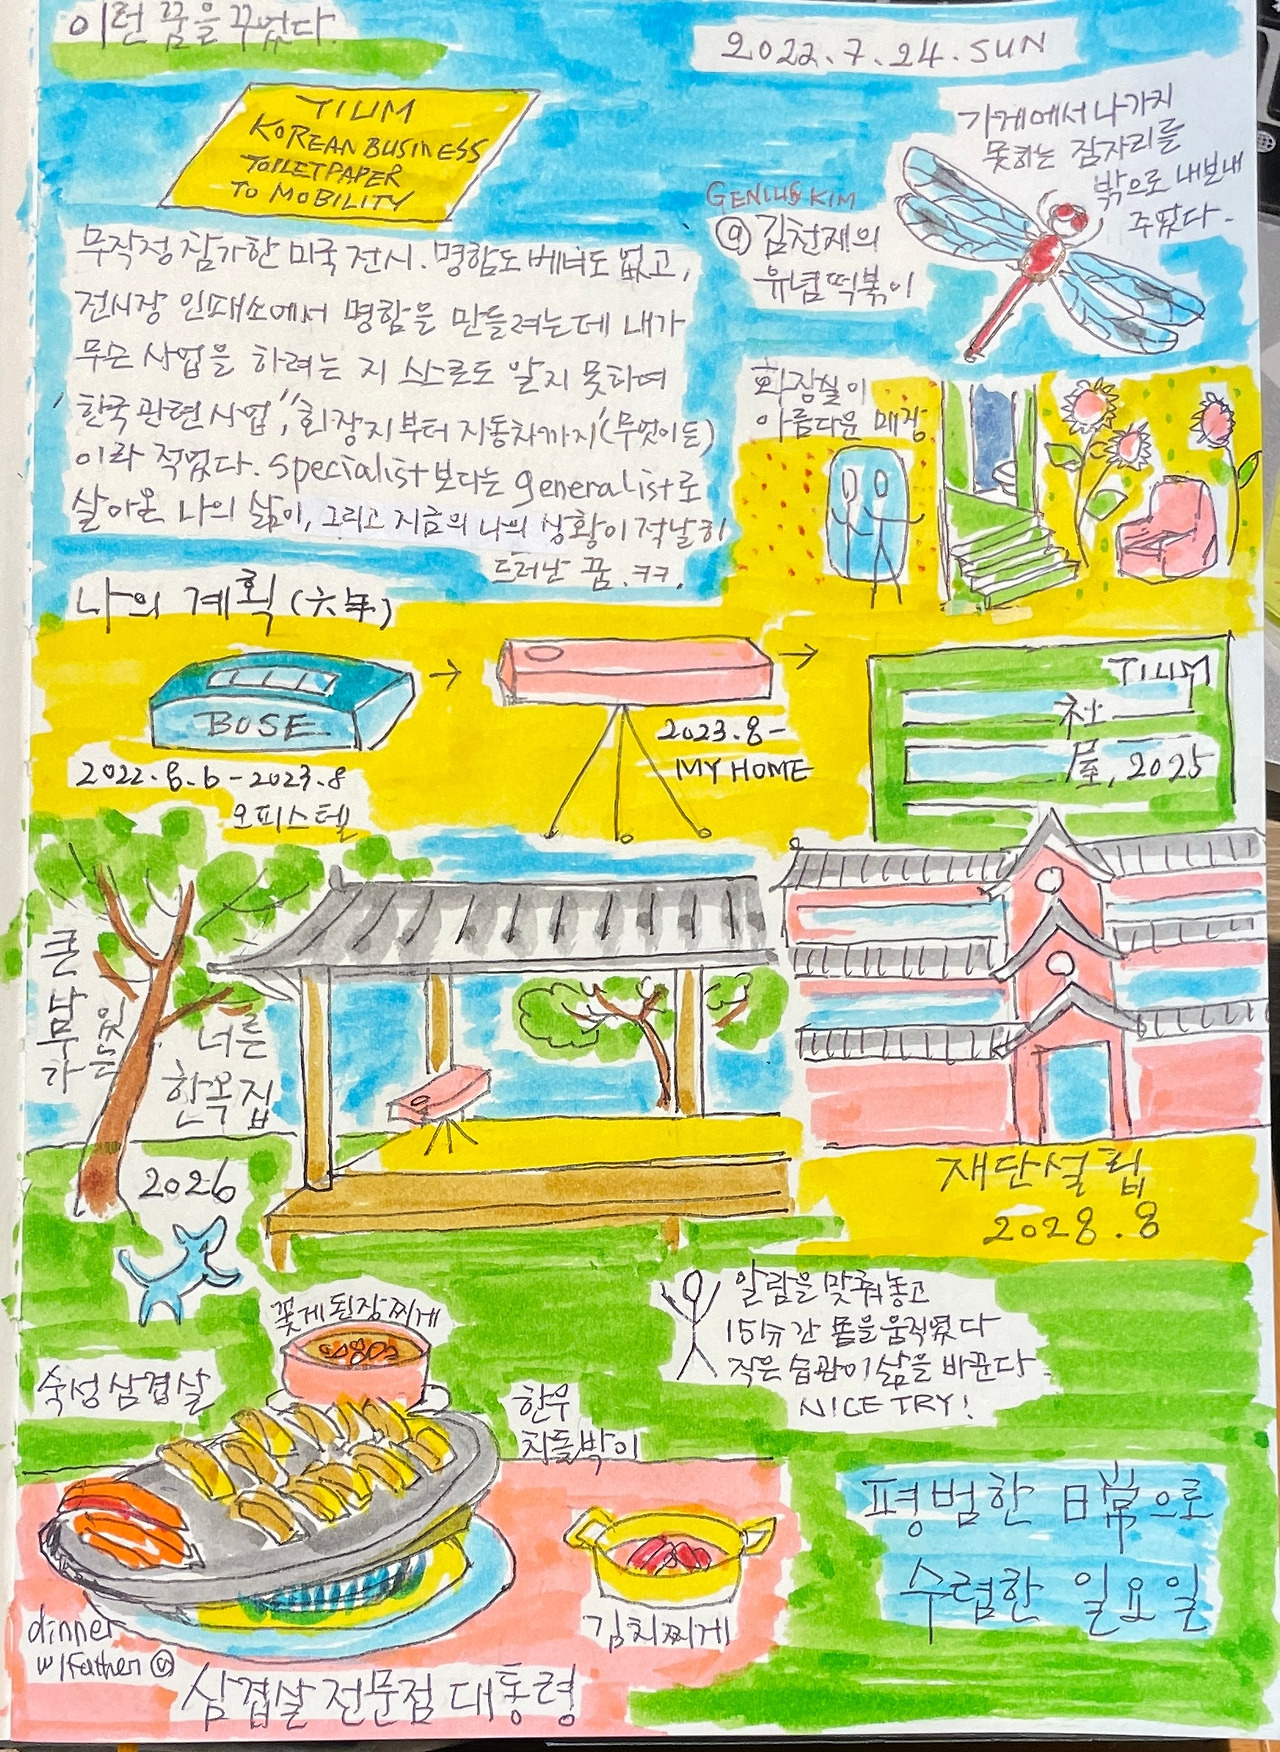 이런 꿈을 꾸었다.
2022.7.24.SUN
TIUM
KOREAN BUSINESS
TOILETPAPER
TO MOBILITY
가게에서 나가지
못하는 잠자리를
밖으로 내보내
주었다.
GENIUS KIM
@ 김천재의
유념떡볶이
무작정 참가한 미국 전시. 명함도 베너도 없고,
전시장 인쇄소에서 명함을 만들려는데 내가
무슨 사업을 하려는 지 스스로도 알지 못하여
'한국 관련 사업', '화장지부터 자동차까지(무엇이든)
이라 적었다. specialist보다는 generalist로
살아온 나의 삶이, 그리고 지금의 나의 상황이 적날히
드러난 꿈. ㅋㅋ.
화장실이
아름다운 매장
나의 계획(六年)
BOSE
2022.8.6-2023.8
오피스텔
2023.8-
MY HOME
TIUM
社
屋, 2025
큰
나무가
있는
너른
한옥집
2026
재단설립
2028.8
알람을 맞춰놓고
15分간 몸을 움직였다
작은 습관이 삶을 바꾼다.
NICE TRY!
꽃게된장찌게
숙성삼겹살
한우
차돌박이
김치찌게
dinner
w/Father
삼겹살 전문점 대통령
평범한 日常으로
수렴한 일요일